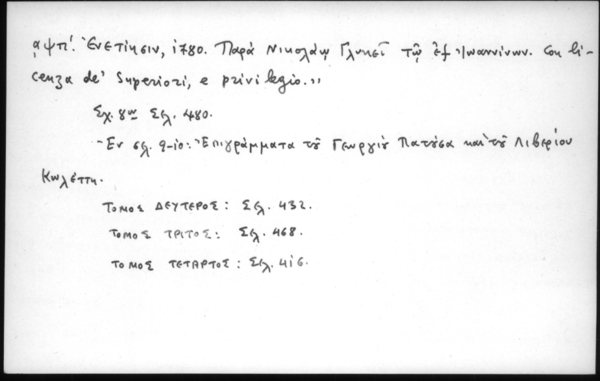 ͵αψπ΄. Ἐνετίησιν, 1780. Παρὰ Νικολάῳ Γλυκεῖ τῷ ἐξ Ἰωαννίνων. Con li-
cenza de' Superiori, e privilegio.»
Σχ. 8ον Σελ. 480.
- Ἐν σελ. 9-10: Ἐπιγράμματα τοῦ Γεωργίου Πατούσα καὶ τοῦ Λιβερίου
Κωλέττη.
ΤΟΜΟΣ ΔΕΥΤΕΡΟΣ: Σελ. 432.
ΤΟΜΟΣ ΤΡΙΤΟΣ: Σελ. 468.
ΤΟΜΟΣ ΤΕΤΑΡΤΟΣ: Σελ. 416.